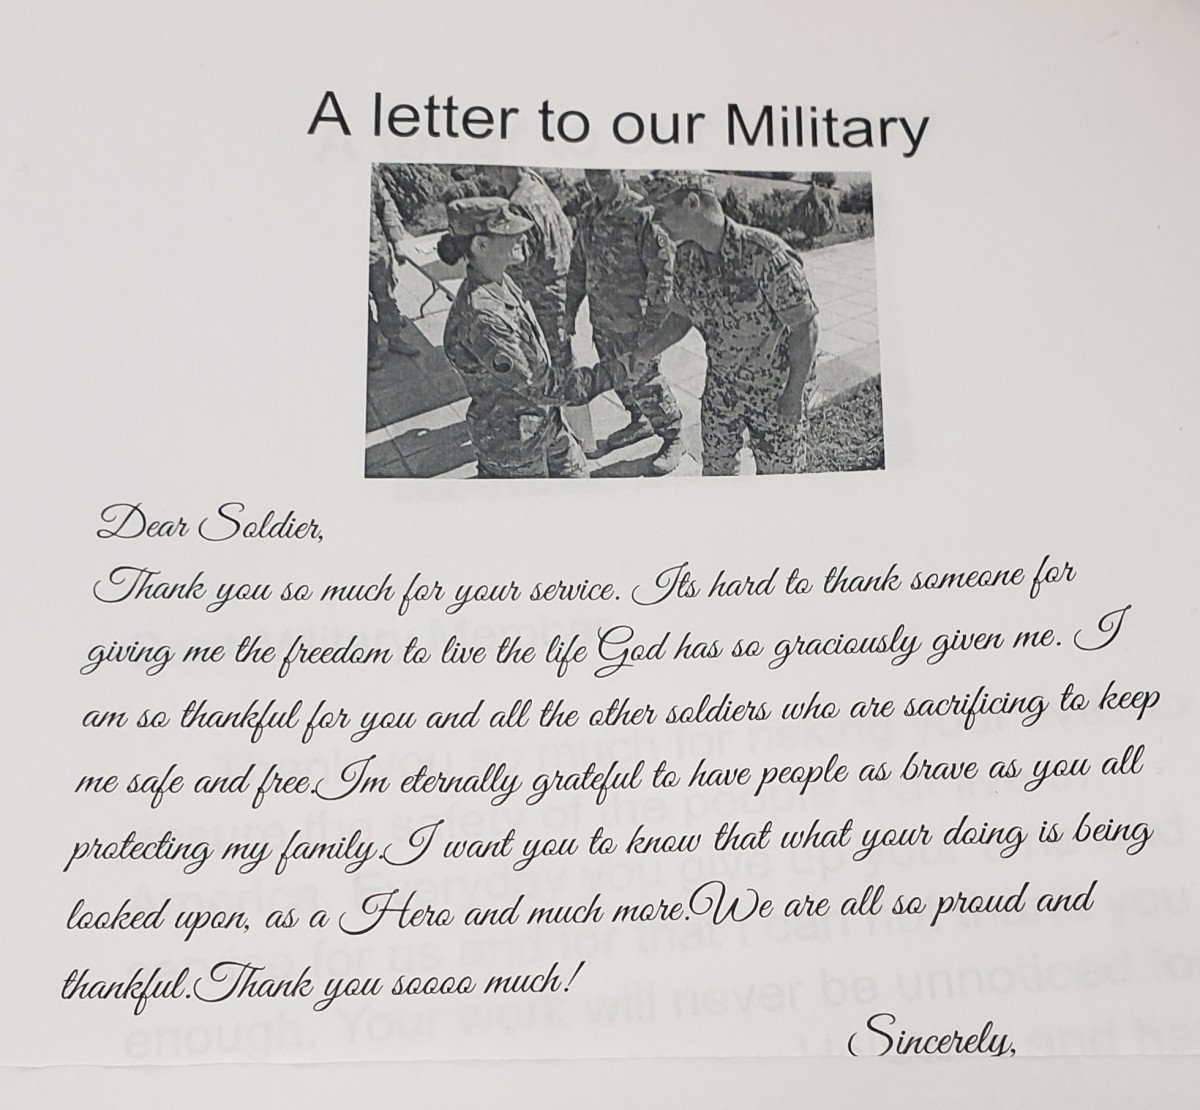 A letter to our Military
Dear Soldier,
Thank you so much for your service. Its hard to thank someone for
giving me the freedom to live the life God has so graciously given me. I
am so thankful for you and all the other soldiers who are sacrificing to keep
me safe and free.Im eternally grateful to have people as brave as you all
protecting my family.I want you to know that what your doing is being
looked upon, as a Hero and much more.We are all so proud and
thankful.Thank you soooo much!
Sincerely,